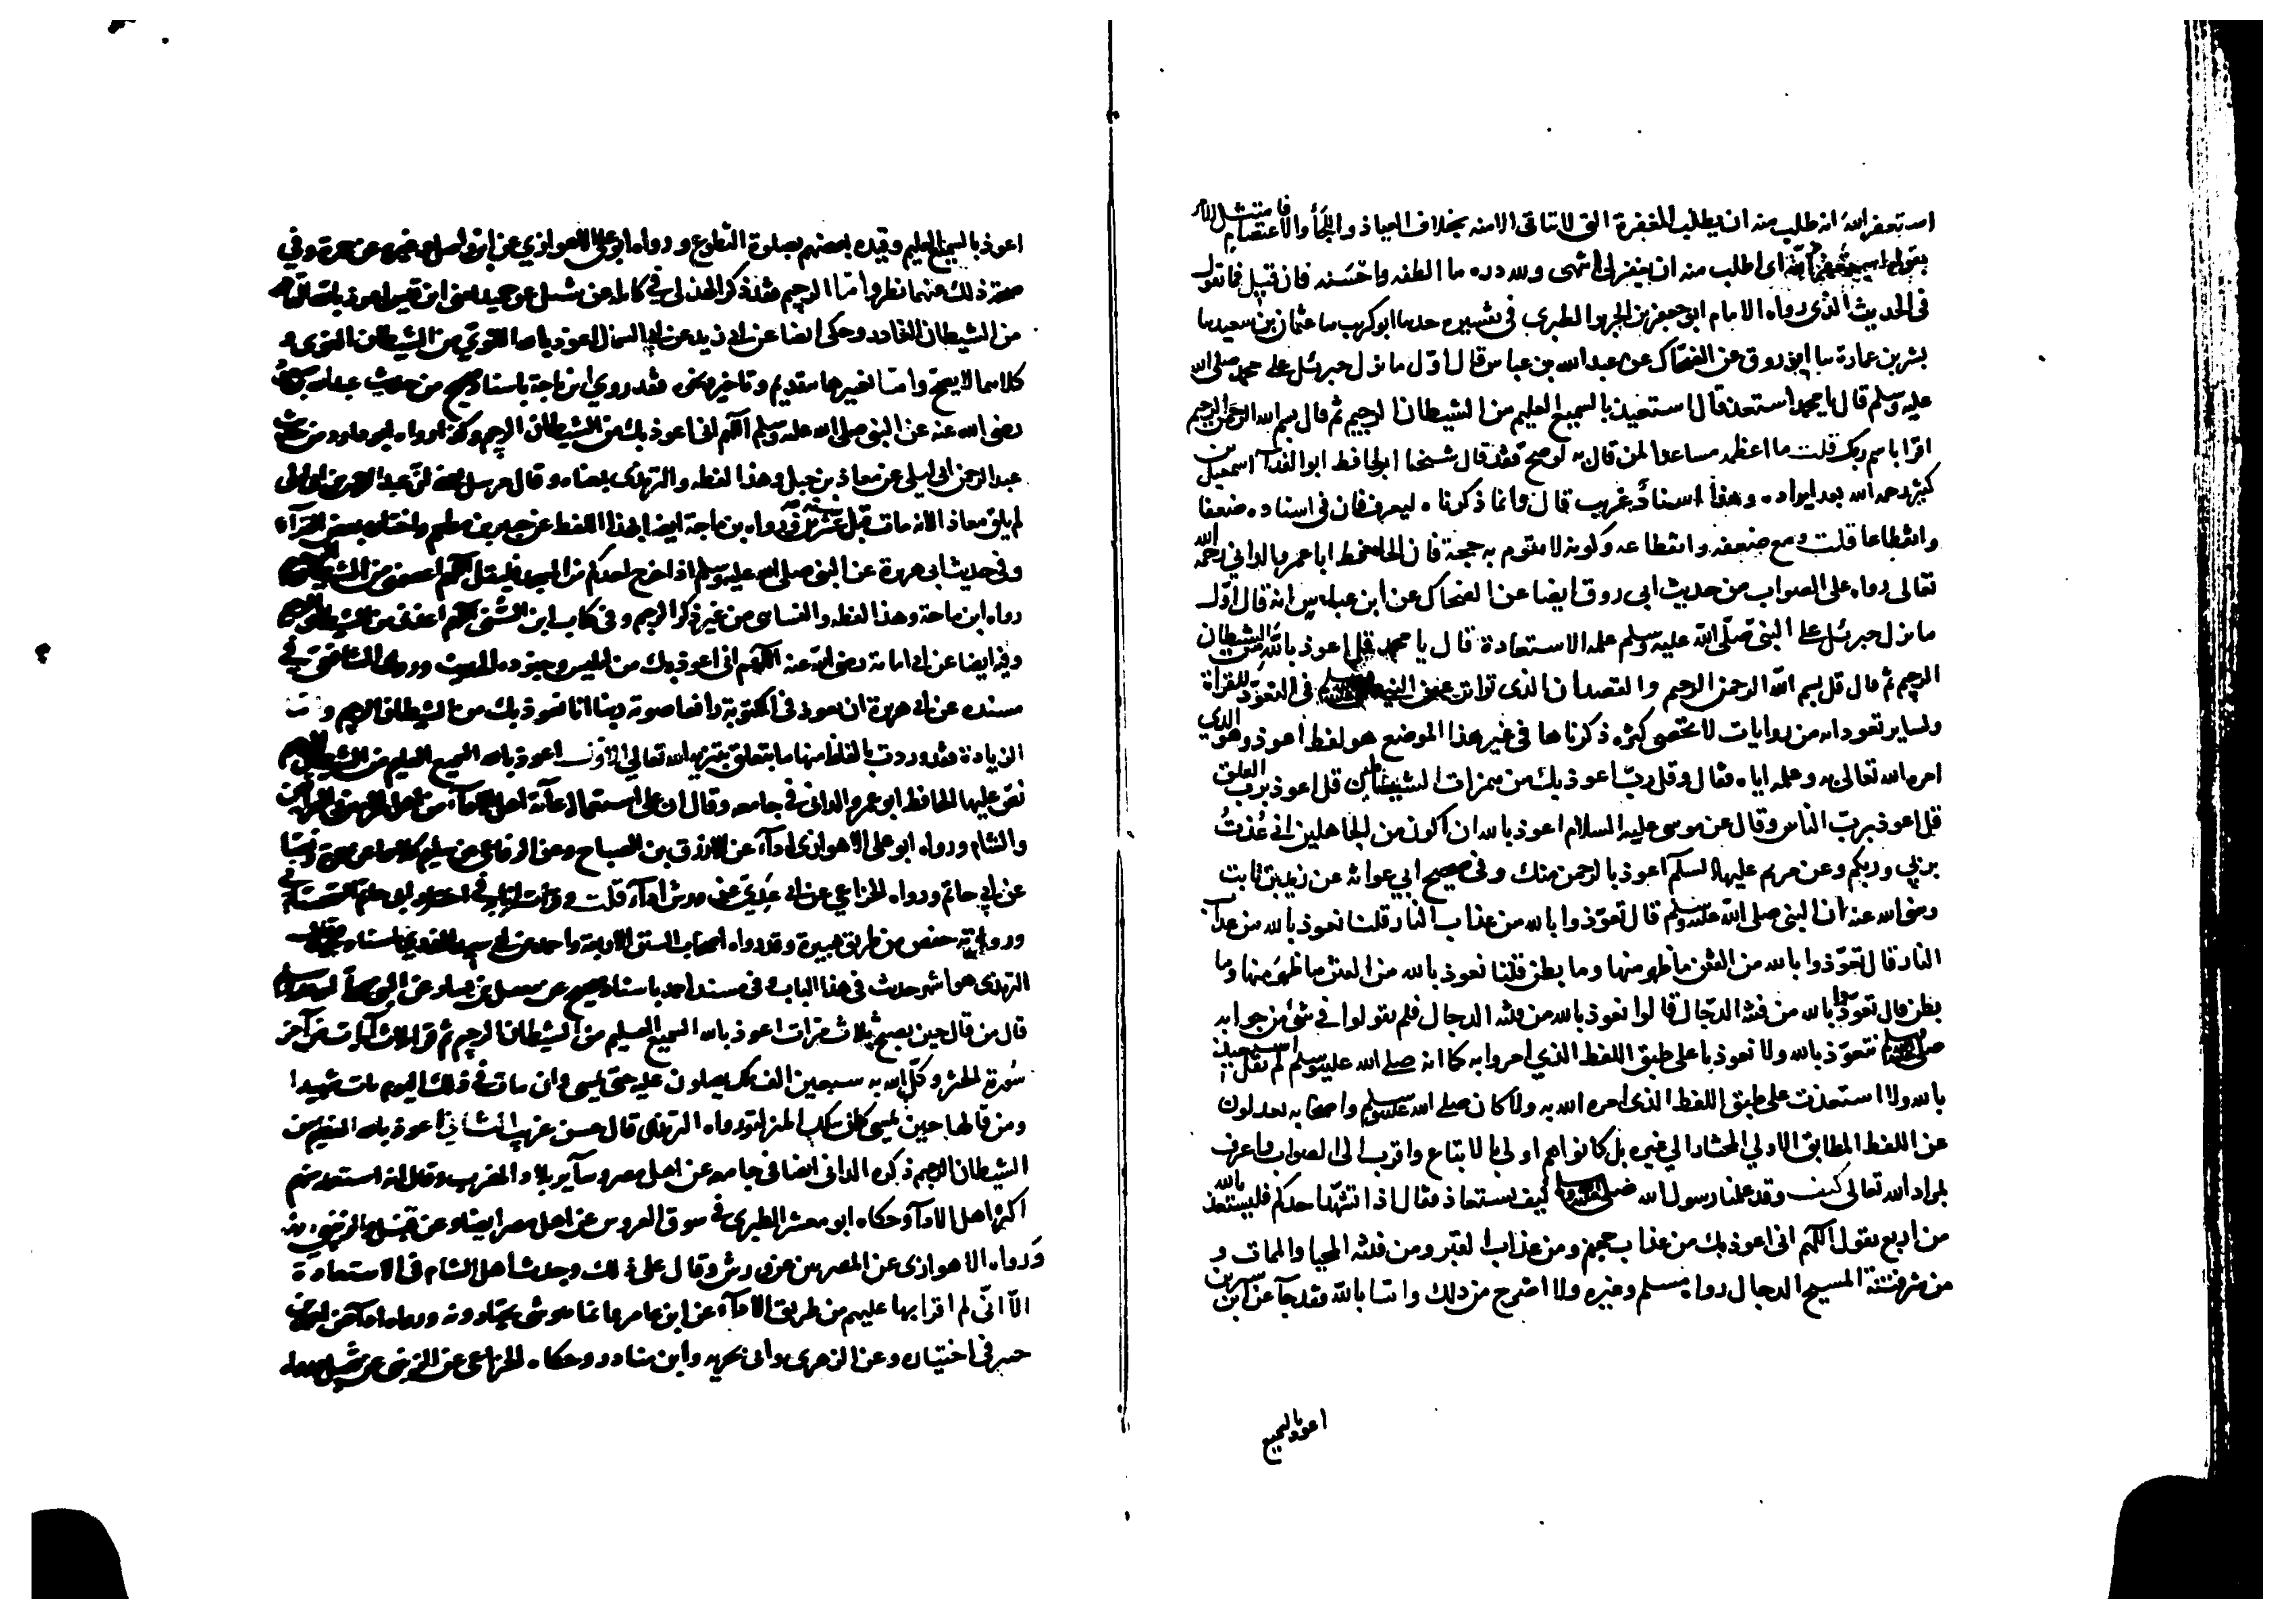 استغفر الله انه طلب منه ان يطلب المغفرة التي لا تتاتى الا منه بخلاف العياذ واللجأ والاعتصام فامتثل الامر
بقوله استغفر الله اى اطلب منه ان يغفر لى انتهى ولله دره ما الطفه واحسنه فان قيل فما تقول
فى الحديث الذى رواه الامام ابو جعفر بن الجرير الطبرى فى تفسيره حدسا ابو كريب سا عثمان بن سعيد سا
بشر بن عمارة سا ابو روق عن الضحاك عن عبد الله بن عباس قال اول ما نزل جبرئل على محمد صلى الله
عليه وسلم قال يا محمد استعذ قال استعيذ بالسميع العليم من الشيطان الرجيم ثم قال بسم الله الرحمن الرحيم
اقرا باسم ربك قلت ما اعظمه مساعدا لمن قال به لو صح فقد قال شيخنا الحافظ ابو الفدا اسمعيل بن
كثير رحمه الله بعد ايراده وهذا اسناد غريب قال وانما ذكرناه ليعرف فان فى اسناده ضعفا
وانقطاعا قلت ومع ضعفه وانقطاعه وكونه لا تقوم به حجة فان الحافظ ابا عمرو الدانى رحمه الله
تعالى رواه على الصواب من حديث ابى روق ايضا عن الضحاك عن ابن عباس انه قال اول
ما نزل جبرئل على النبى صلى الله عليه وسلم علمه الاستعاذة قال يا محمد قل اعوذ بالله من الشيطان
الرجيم ثم قال قل بسم الله الرحمن الرحيم والقصد ان الذى تواتر عن النبى صلى الله عليه وسلم فى التعوذ للقراة
ولساير تعوداته من روايات لا تحصى كثره ذكرناها فى غير هذا الموضع هو لفظ اعوذ وهو الذي
امره الله تعالى به وعلمه اياه فقال وقل رب اعوذ بك من همزات الشياطين قل اعوذ برب الفلق
قل اعوذ برب الناس وقال عن موسى عليه السلام اعوذ بالله ان اكون من الجاهلين انى عذت
بربي وربكم وعن مريم عليها السلم اعوذ بالرحمن منك وفى صحيح ابي عوانه عن زيد بن ثابت
رضى الله عنه ان النبى صلى الله عليه وسلم قال تعوذوا بالله من عذاب النار قلنا نعوذ بالله من عذاب
النار قال تعوذوا بالله من الفتن ما ظهر منها وما بطن قلنا نعوذ بالله من الفتن ما ظهر منها وما
بطن قال تعوذوا بالله من فتنه الدجال قالوا نعوذ بالله من فتنه الدجال فلم يقولوا فى شئ من جوابه
صلى الله عليه وسلم نتعوذ بالله ولا نعوذ با على طبق اللفظ الذي امروا به كما انه صلى الله عليه وسلم لم يقل استعيذ
بالله ولا استعذت على طبق اللفظ الذى امره الله به ولا كان صلى الله عليه وسلم واصحابه يعدلون
عن اللفظ المطابق الاولي المختار الي غيره بل كانوا هم اولى بالاتباع واقرب الى الصواب واعرف
بمراد الله تعالى كيف وقد علمنا رسول الله صلى الله عليه وسلم كيف يستعاذ فقال اذا تشهد احدكم فليستعذ بالله
من اربع يقول اللهم انى اعوذ بك من عذاب جهنم ومن عذاب القبر ومن فتنه المحيا والممات و
من شر فتنة المسيح الدجال رواه مسلم وغيره ولا اصرح من ذلك واتسا بالله فقد جآ عن ابن سيرين
اعوذ بالسميع
اعوذ بالسميع العليم وقيده بعضهم بصلوة التطوع ورواه ابو على الاهوازي عن ابن واصل وغيره عن حمزة وفي
صحة ذلك عنهما نظر واما الرجيم فقد ذكر الهذلى فى كامله عن شبل عن حميد يعنى ابن قيس اعوذ بالله القادر
من الشيطان الغادر وحكى ايضا عن ابى زيد عن ابى السمال اعوذ بالله القوي من الشيطان الغوى و
كلاهما لا يصح واما تغيرها بتقديم وتاخير ونحوه فقد روي ابن ماجة باسناد صحيح من حديث عبد الله بن مسعود
رضى الله عنه عن النبى صلى الله عليه وسلم اللهم انى اعوذ بك من الشيطان الرجيم وكذا رواه ابو داود من حديث
عبد الرحمن ابى ليلى عن معاذ بن جبل وهذا لفظه والترمذى بمعناه وقال مرسل يعنى ان عبد الرحمن بن ابى ليلى
لم يلق معاذ الانه مات قبل سنة عشرين ورواه ابن ماجة ايضا بهذا اللفظ عن جبير بن مطعم واختاره بعض القرآء
وفى حديث ابى هريرة عن النبى صلى الله عليه وسلم اذا خرج احدكم من المسجد فليقل اللهم اعصمنى من الشيطان الرجيم
رواه ابن ماجة وهذا لفظه والنسائى من غير ذكر الرجيم وفى كتاب ابن السنى اللهم اعذنى من الشيطان الرجيم
وفيه ايضا عن ابى امامة رضى الله عنه اللهم انى اعوذ بك من ابليس وجنوده وروى الشافعى فى
مسنده عن ابى هريرة انه تعوذ فى المكتوبة رافعا صوته ربنا انا نعوذ بك من الشيطان الرجيم و
الزيادة فقد وردت بالفاظ منها ما يتعلق بتنزيه الله تعالى الاول اعوذ بالله السميع العليم من الشيطان الرجيم
نص عليها الحافظ ابو عمرو الدانى فى جامعه وقال ان على استعماله عامة اهل الادآء من اهل الحرمين والعراقين
والشام ورواه ابو على الاهوازى ادآء عن الازرق بن الصباح وعن الرفاعى عن سليم كلاهما عن حمزة ونصا
عن ابى حاتم ورواه الخزاعي عن ابى عدي عن ورش ادآء قلت وقرات انا به فى اختيار ابى حاتم السجستانى
ورواية حفص من طريق هبيرة وقد رواه اصحاب السنن الاربعة واحمد عن ابى سعيد الخدرى باسناد جيد وقال
الترمذى هو اشهر حديث فى هذا الباب و فى مسند احمد باسناد صحيح عن معقل بن يسار عن النبى صلى الله عليه وسلم
قال من قال حين يصبح ثلاث مرات اعوذ بالله السميع العليم من الشيطان الرجيم ثم قرا ثلاث آيات من آخر
سورة الحشر وكل الله به سبعين الف ملك يصلون عليه حتى يمسى وان مات فى ذلك اليوم مات شهيدا
ومن قالها حين يمسى كان بتلك المنزلة رواه الترمذى قال حسن غريب الثاني اعوذ بالله العظيم من
الشيطان الرجيم ذكره الدانى ايضا فى جامعه عن اهل مصر وسآير بلاد المغرب وقال انه استعمله منهم
اكثر اهل الادآء وحكاه ابو معشر الطبرى فى سوق العروس عن اهل مصر ايضا وعن قنبل والزينبى
ورواه الاهوازى عن المصريين عن ورش وقال على ذلك وجدت اهل الشام فى الاستعاذة
الا انى لم اقرا بها عليهم من طريق الادآء عن ابن عامر وانما هو شئ يختارونه ورواه ادآء عن احمد بن
جبير فى اختياره وعن الزهرى وابى بحريه وابن مناذر وحكاه الخزاعى عن الزينبى عن قنبل